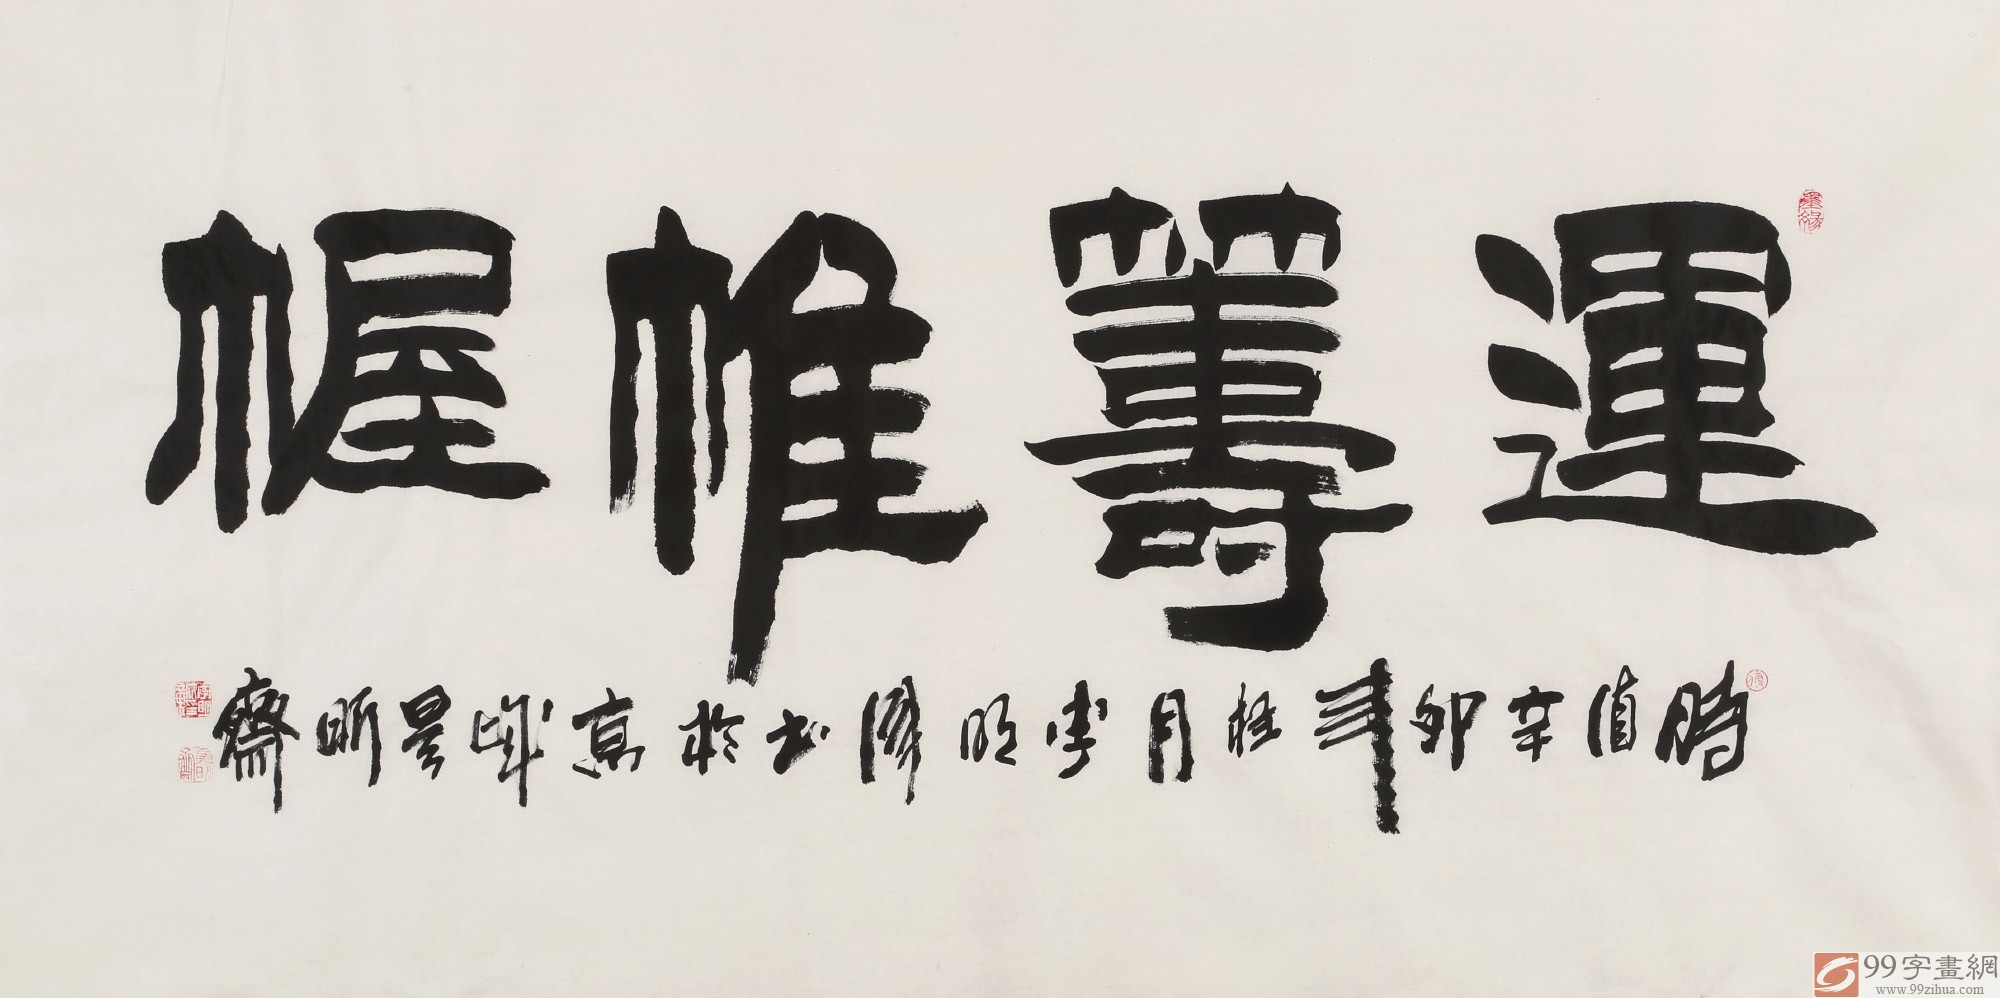 運籌帷幄
時值辛卯年桂月李明濤書於京城景昕齋
墨緣
99字畫網
www.99zihua.com